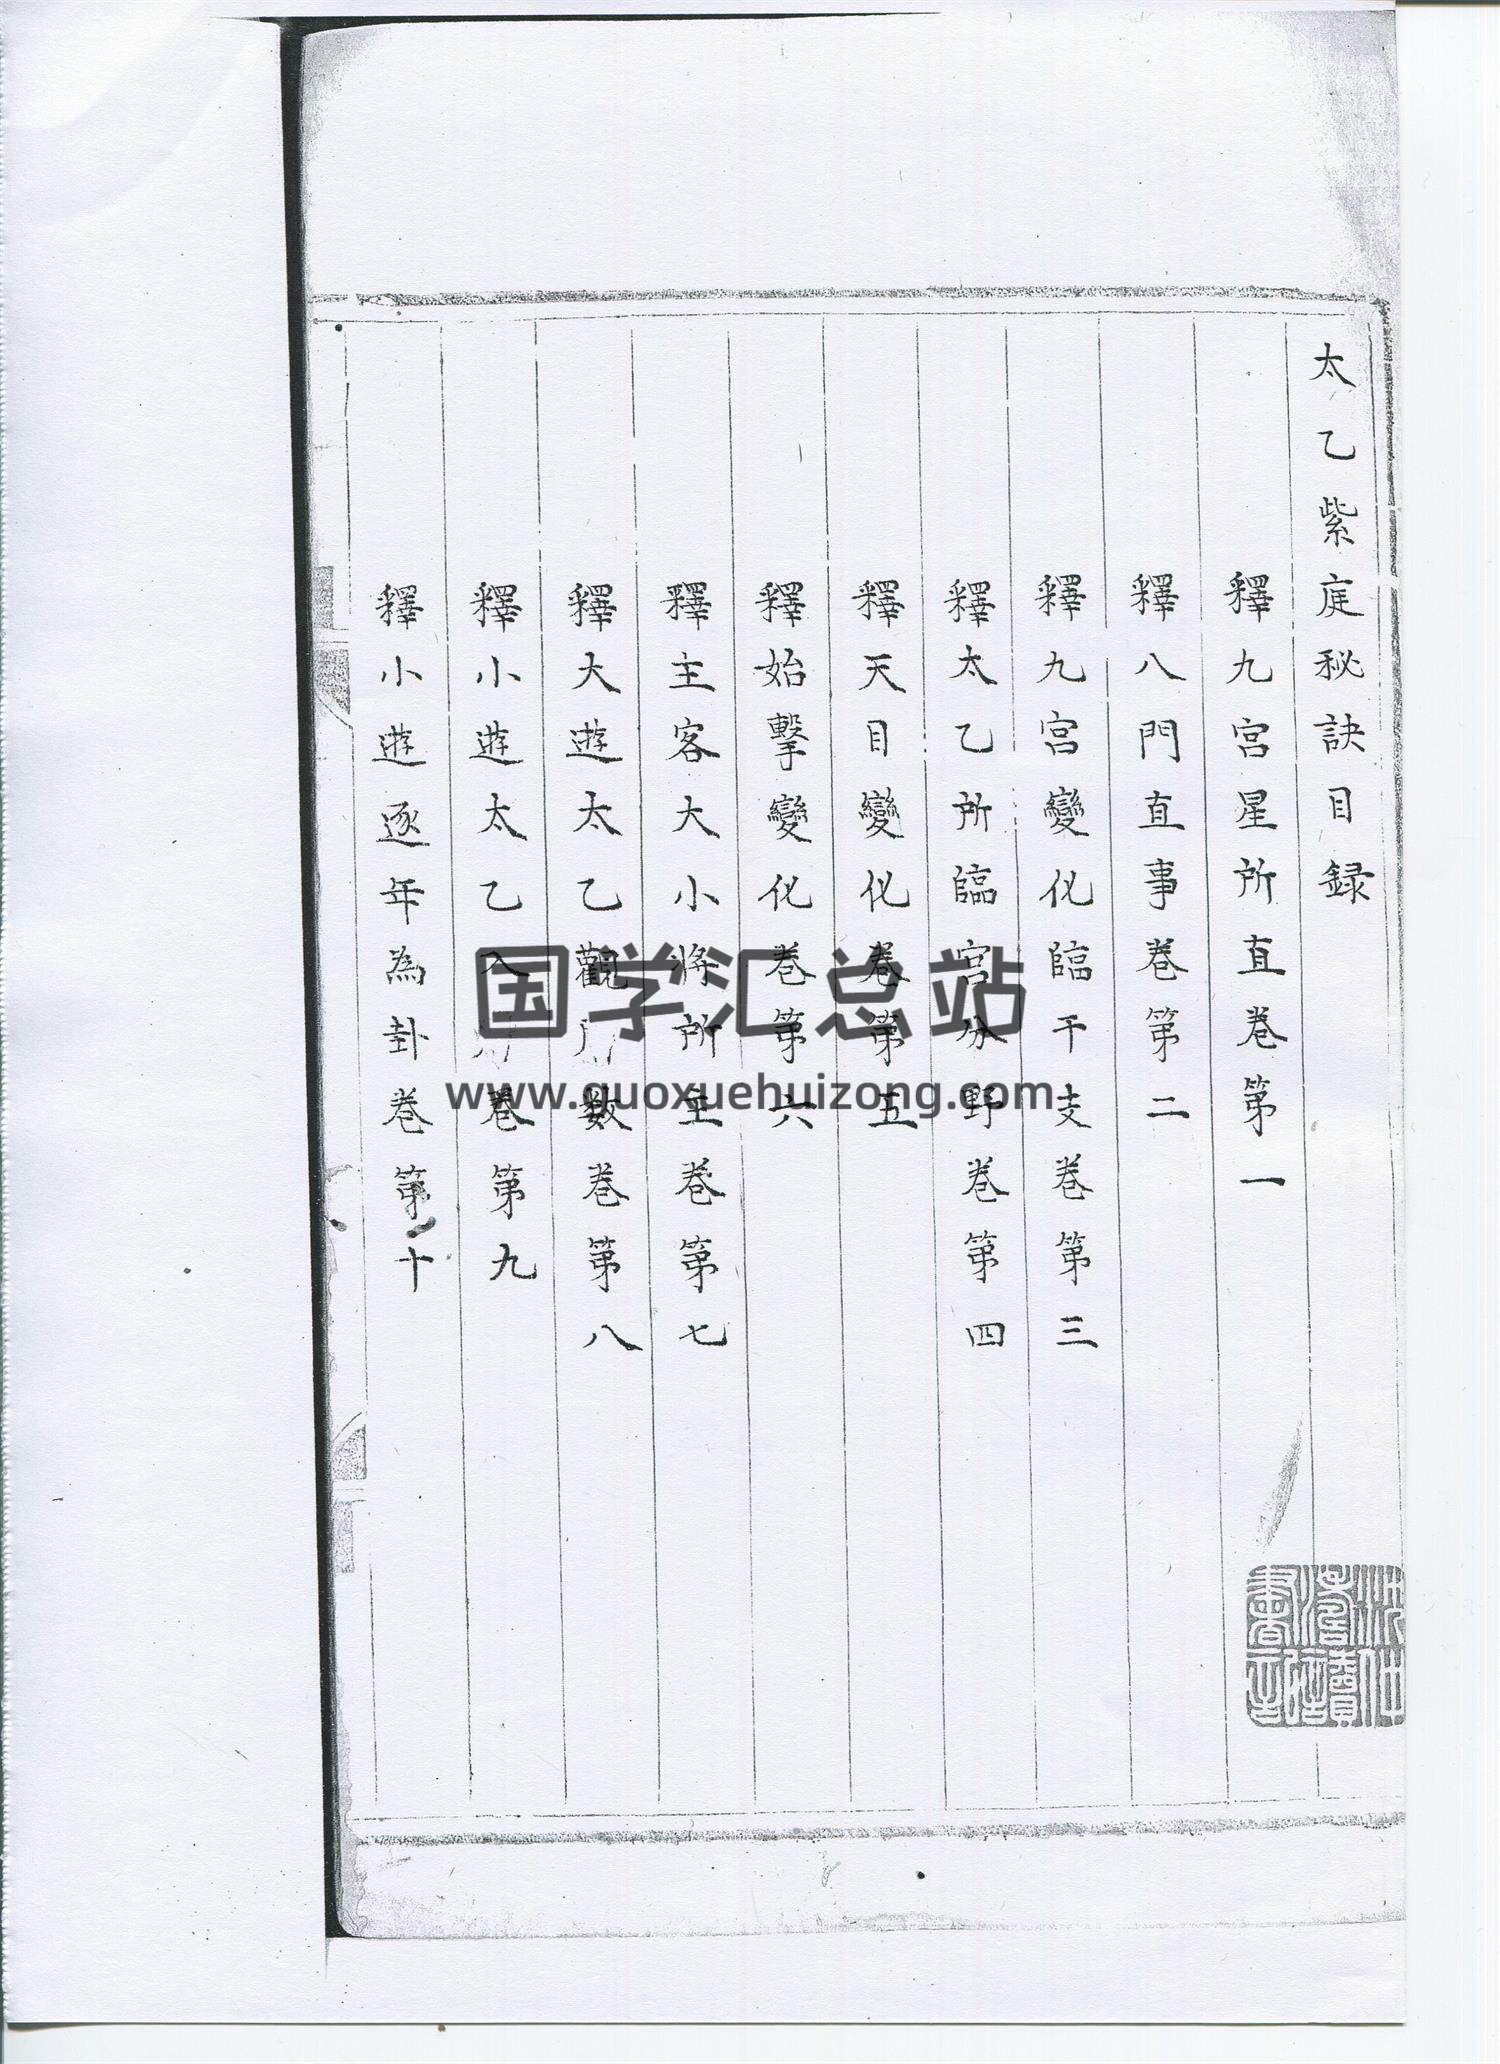 太乙紫庭秘訣目録
釋九宮星所直卷第一
釋八門直事卷第二
釋九宮變化臨干支卷第三
釋太乙所臨宮分野卷第四
釋天目變化卷第五
釋始擊變化卷第六
釋主客大小將所主卷第七
釋大遊太乙觀數卷第八
釋小遊太乙入卷第九
釋小遊逐年為卦卷第十
国学汇总站
www.guoxuehuizong.com